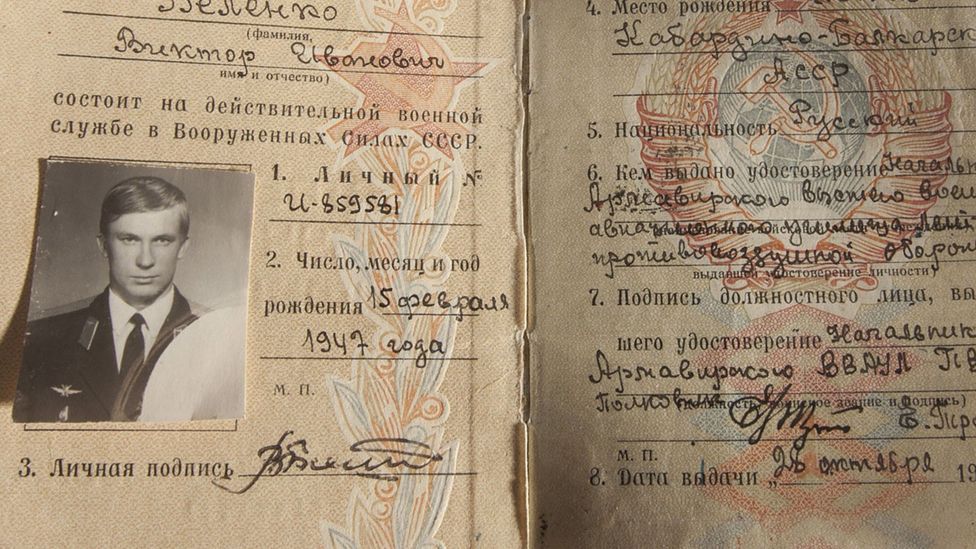 Беленко
(фамилия,
Виктор Иванович
имя и отчество)
состоит на действительной военной
службе в Вооруженных Силах СССР.
1. Личный №
И-859581
2. Число, месяц и год
рождения 15 февраля
1947 года
М. П.
3. Личная подпись
4. Место рождения
Кабардино-Балкарск
АССР
5. Национальность Русский
6. Кем выдано удостоверение Начальн
Армавирского высшего вое
авиационного училища
противовоздушной оборон
выдавшей удостоверение личности
7. Подпись должностного лица, вы
шего удостоверение Начальник
Армавирского ВВАУЛ ПВ
Полковник
М. П.
8. Дата выдачи „28 октября 19